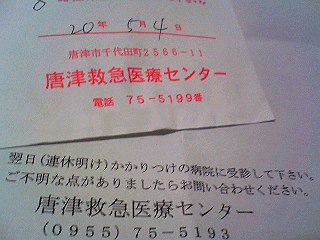 20年 5月 4日
唐津市千代田町2566-11
唐津救急医療センター
電話 75-5199番
翌日(連休明け)かかりつけの病院に受診して下さい。
ご不明な点がありましたらお問い合わせください。
唐津救急医療センター
(0955)75-5193